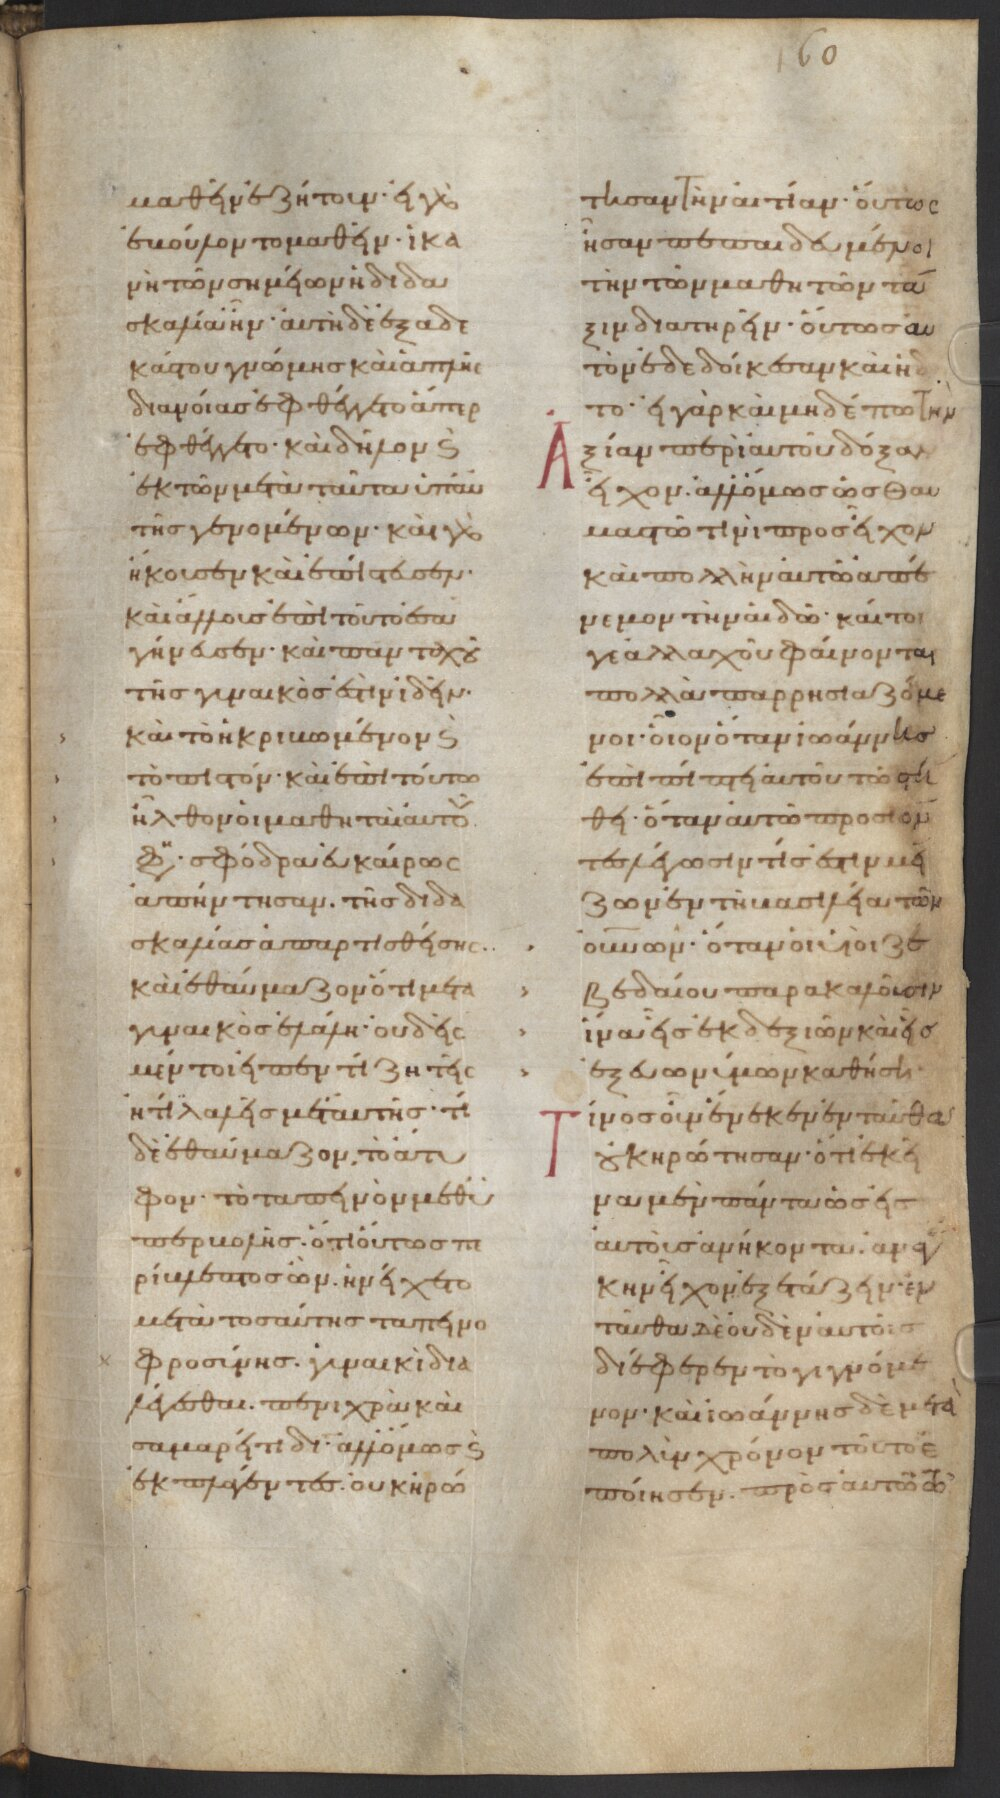 160
μαθεῖν ἐζήτουν· εἰ γὰρ
ἐβούλοντο μαθεῖν· ἱκα
νὴ τῶν σημείων ἡ διδα
σκαλία ἦν· αὐτὴ δὲ ἐξ ἀδε
κάστου γνώμης καὶ ἁπλῆς
διανοίας ἐφθέγγετο ἅπερ
ἐφθέγγετο· καὶ δῆλον
ἐκ τῶν μετὰ ταῦτα ὑπ' αὐ
τῆς γενομένων· καὶ γὰρ
ἤκουσεν καὶ ἐπίστευσεν·
καὶ ἄλλους ἐπὶ τοῦτο ἐσα
γήνευσεν· καὶ πανταχοῦ
τῆς γυναικὸς ἔστιν ἰδεῖν·
καὶ τὸ ἠκριβωμένον
τὸ πιστόν· καὶ ἐπὶ τούτω
ἦλθον οἱ μαθηταὶ αὐτοῦ
φη· σφόδρα εὐκαίρως
ἀπήντησαν· τῆς διδα
σκαλίας ἀπαρτισθείσης·
καὶ ἐθαύμαζον ὅτι μετὰ
γυναικὸς ἐλάλει· οὐδεὶς
μέντοι εἶπεν τί ζητεῖς
ἢ τί λαλεῖς μετ' αὐτῆς· τί
δὲ ἐθαύμαζον, τὸ ἄτυ
φον· τὸ ταπεινὸν μεθ' ὑ
περβολῆς· ὅτι οὕτως πε
ρίβλεπτος ὢν· ἠνείχετο
μετὰ τοσαύτης ταπεινο
φροσύνης· γυναικὶ δια
λέγεσθαι· πενιχρᾶ καὶ
σαμαρείτιδι· ἀλλ' ὅμως
ἐκπλαγέντες· οὐκ ἠρώ
τησαν τὴν αἰτίαν· οὕτως
ἦσαν πεπαιδευμένοι
τὴν τῶν μαθητῶν τά
ξιν διατηρεῖν· οὕτως αὐ
τὸν ἐδεδοίκεσαν καὶ ἠδ
το· εἰ γὰρ καὶ μηδέπω τὴν
ἀξίαν περὶ αὐτοῦ δόξαν
εἶχον· ἀλλ' ὅμως ὡς θαυ
μαστῶ τινὶ προσεῖχον
καὶ πολλὴν αὐτῶ ἀπέ
νεμον τὴν αἰδῶ· καίτοι
γε ἀλλαχοῦ φαίνονται
πολλὰ παρρησιαζόμε
νοι· οἷον ὅταν ἰωάννης
ἐπιπίπτει αὐτοῦ τῶ στή
θει· ὅταν αὐτῶ προσιόν
τες λέγωσιν τίς ἐστιν μεί
ζων ἐν τῇ βασιλεία τῶν
οὐνῶν· ὅταν οἱ υἱοὶ ζε
βεδαίου παρακαλοῦσιν
ἵνα εἷς ἐκ δεξιῶν καὶ εἷς
ἐξ εὐωνύμων καθήση·
Τίνος οὖν ἕνεκεν ἐνταῦθα
οὐκ ἠρώτησαν· ὅτι ἐκεῖ
να μὲν πάντα ὡς εἰς
αὐτοὺς ἀνήκοντα· ἀνάγ
κην εἶχον ἐξετάζειν· ἐν
ταῦθα δὲ οὐδὲν αὐτοῖς
διέφερεν τὸ γιγνόμε
νον· καὶ ἰωάννης δὲ μετὰ
πολὺν χρόνον τοῦτο ἐ
ποίησεν· πρὸς αὐτῶ